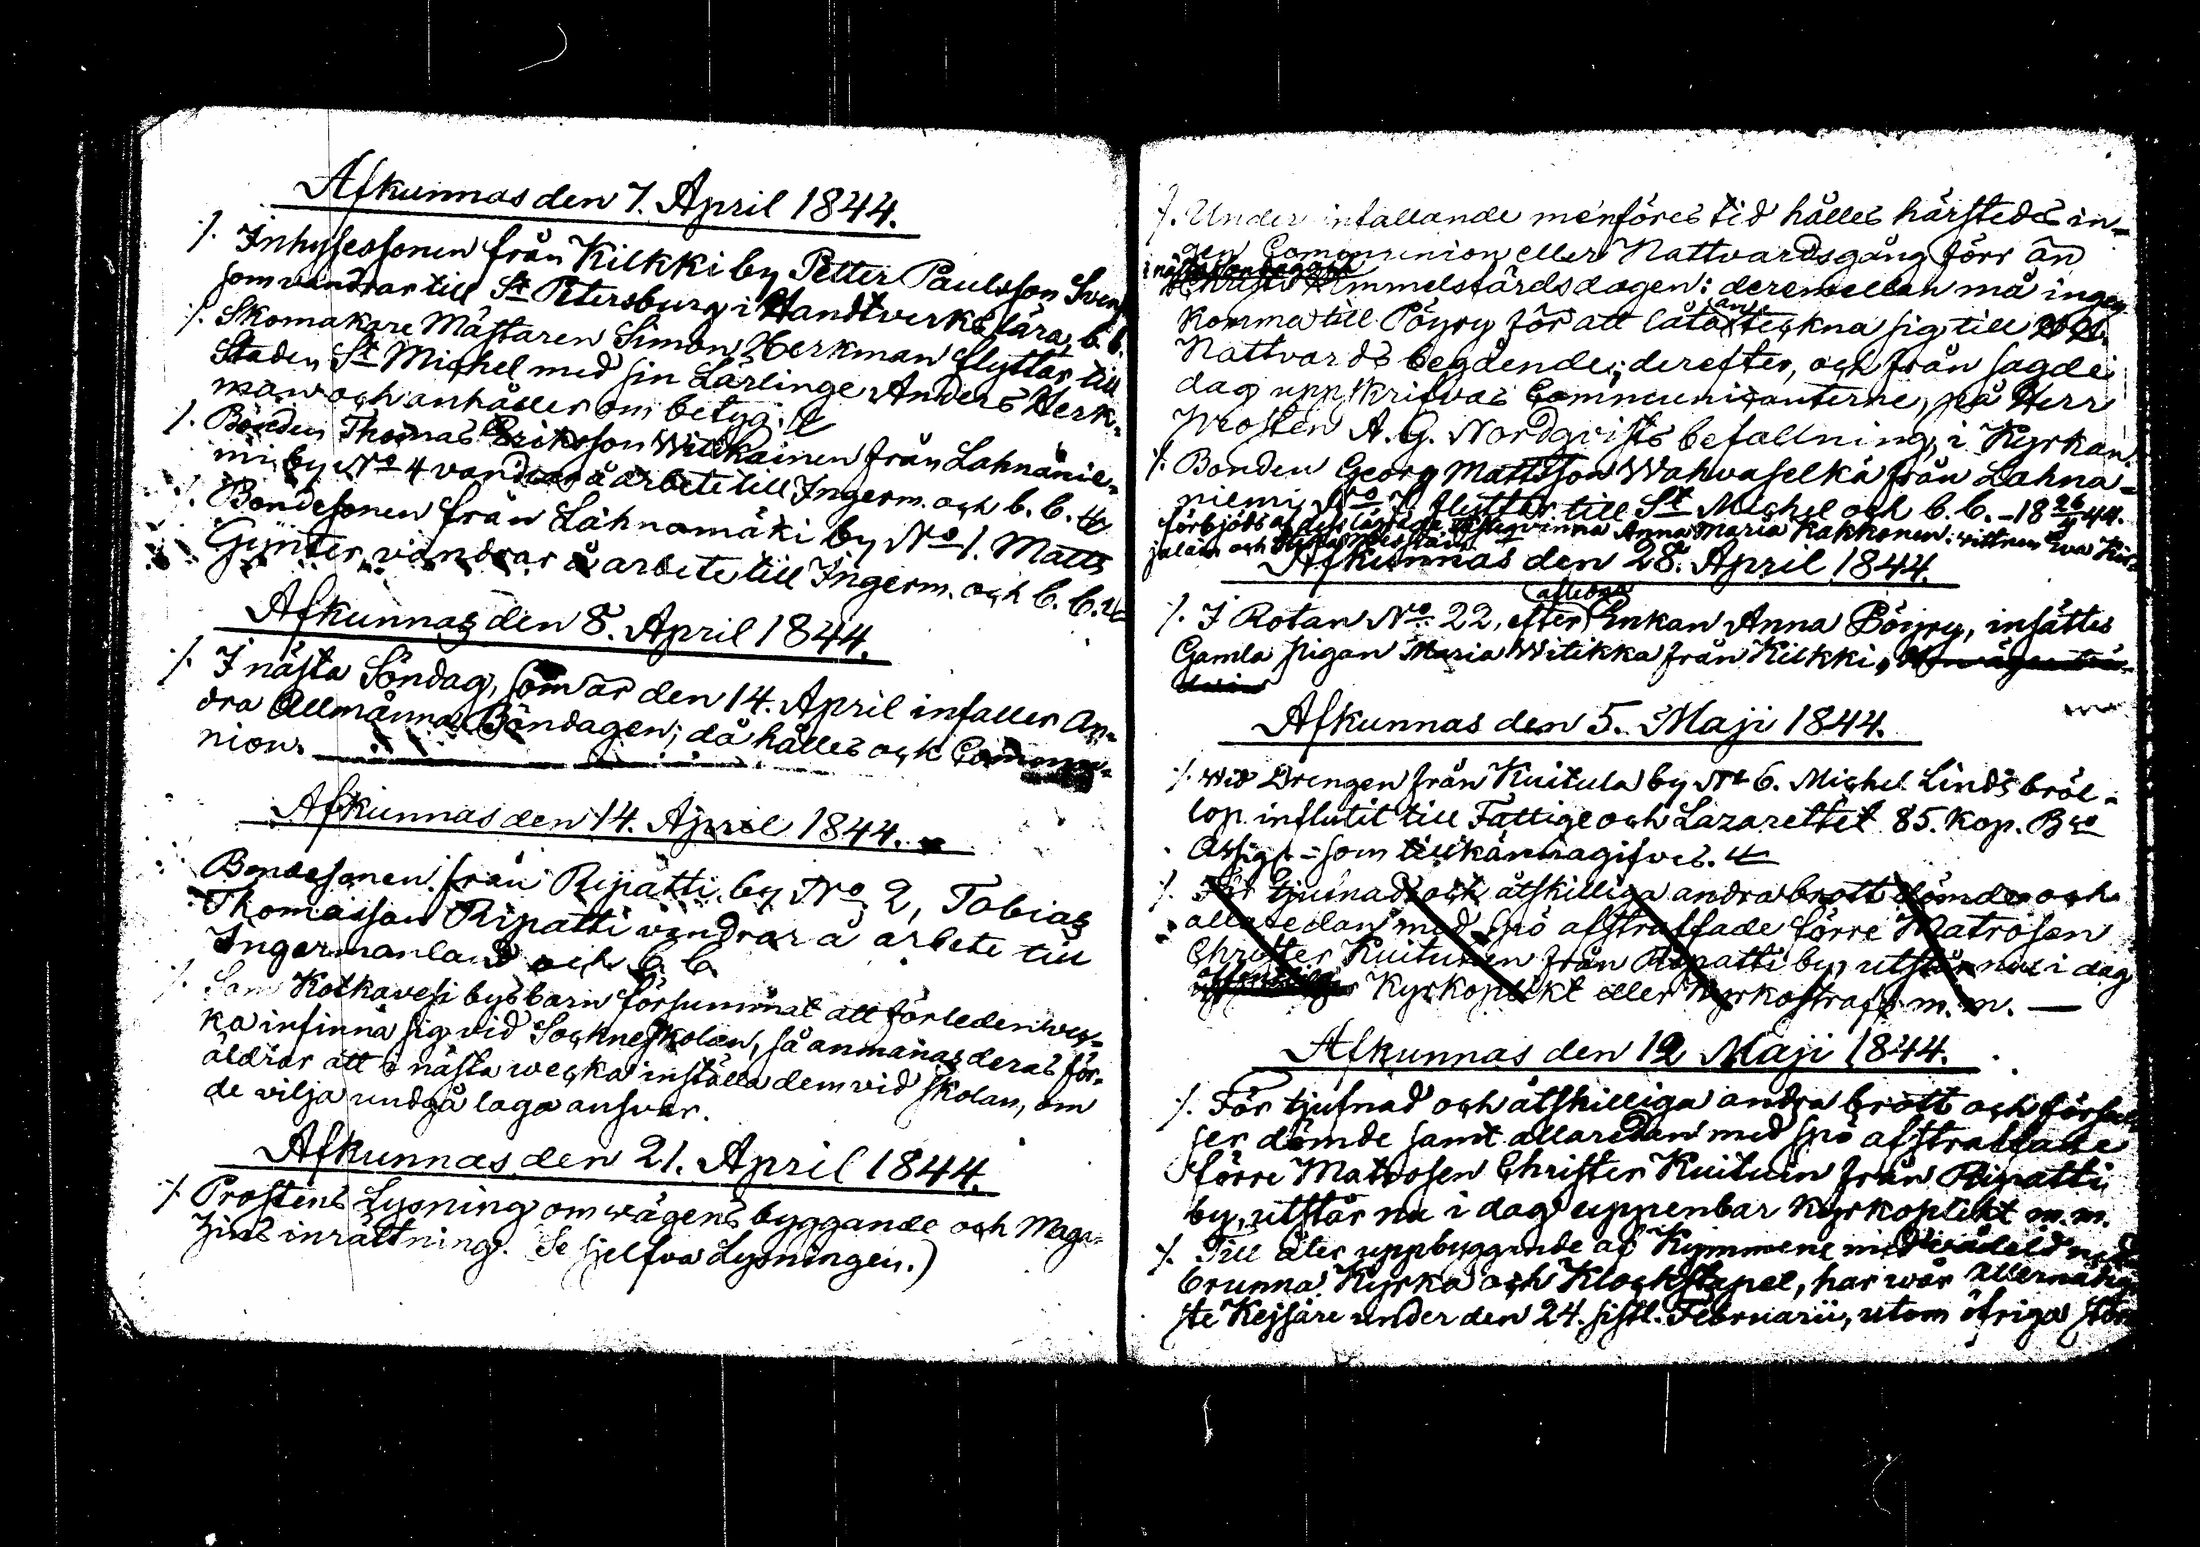 Afkunnas den 7. April 1844.
⁒ Inhysessonen från Kilkki by Petter Paulsson Sven
som vandrar till St Petersburg i Handtverks lära, b. b.
⁒ Skomakare Mästaren Simon Herkman flyttar till
Staden St Michel med sin Lärlinge Anders Herk-
man och anhåller om betyg.
⁒ Bonden Thomas Eriksson Wilskainen från Lahnanie-
mi by No 4 vandrar å arbete till Ingerm. och b. b.
⁒ Bondesonen från Lahnamäki by No 1. Matts
Gynter vandrar å arbete till Ingerm. och b. b.
Afkunnas den 8. April 1844.
⁒ I nästa Söndag, som är den 14. April infaller An-
dra Allmänna Böndagen; då hålles ock Commu-
nion.
Afkunnas den 14. April 1844.
Bondesonen från Ripatti by No 2, Tobias
Thomasson Ripatti vandrar å arbete till
Ingermanland och b. b.
⁒ Som Kotkavesi bys barn försummat att förleden wec-
ka infinna sig vid Sockneskolan, så anmanas deras för-
äldrar att i nästa wecka inställa dem vid skolan, om
de vilja undgå laga ansvar.
Afkunnas den 21. April 1844.
⁒ Prostens Lysning om vägens byggande och Maga-
zins inrättning. Se sjelfva Lysningen.)
⁒ Under infallande menföres tid hålles härstedes in-
gen Communion eller Nattvardsgång förr än
Christi Himmelsfärds dagen: deremellan må ingen
komma till Pöyry för att låta an teckna sig till
Nattvards begående; derefter, och från sagde
dag uppskrifvas Communicanterne, på Herr
Prosten A. G. Nordqvists befallning, i Kyrkan.
⁒ Bonden Georg Mattsson Wahvaselkä från Lahna-
niemi No flyttar till St Michel och b. b. - 18 26/4 44.
förbjöds af dess Anna Maria Kakkonen: vittnen Eva
och
Afkunnas den 28. April 1844.
⁒ I Rotan No 22, efter aflidna Enkan Anna Pöyry, insättes
Gamla pigan Maria Witikka från Kilkki,
Afkunnas den 5. Maji 1844.
⁒ Wid Drengen från Kuitula by No 6. Michel Linds bröl-
lop influtit till Fattige och Lazarettet 85. Kop. Bco
Assign = som tillkännagifves.
⁒ För tjufnad och åtskilliga andra brott dömde och
allaredan med spö afstraffade förre Matrosen
Christer Kuituin från Ripatti by, utstår nu i dag
Kyrkoplikt eller Kyrkostraff m. m.
Afkunnas den 12 Maji 1844.
⁒ För tjufnad och åtskilliga andra brott och
ser dömde samt allaredan med spö afstraffade
förre Matrosen Christer Kuituin från Ripatti
by, utstår nu i dag uppenbar Kyrkoplikt m. m.
⁒ Till åter uppbyggande af Kymmene med vådeld
brunna Kyrka och Klockstapel, har wår Allernådig
ste Kejsare under den 24. sistl. Februarii, utom öfriga